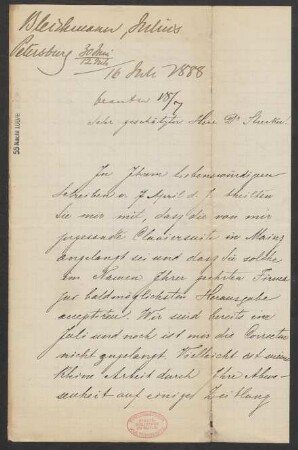 Bleichmann Julius
Petersburg 30 Juni
12 Juli
16 Juli 1888
beantw 18/7
Sehr geschätzter Herr Dr Strecker!
In Ihrem liebenswürdigen
Schreiben v. 7 April d. J. theilten
Sie mir mit, dass die von mir
gesandte Claviersuite in Mainz
angelangt sei und dass Sie solche
im Namen Ihrer geehrten Firma
zur baldmöglichsten Herausgabe
acceptiren. Wir sind bereits im
Juli und noch ist mir die Correctur
nicht zugelangt. Vielleicht ist meine
kleine Arbeit durch Ihre Abwe-
senheit auf einige Zeit lang